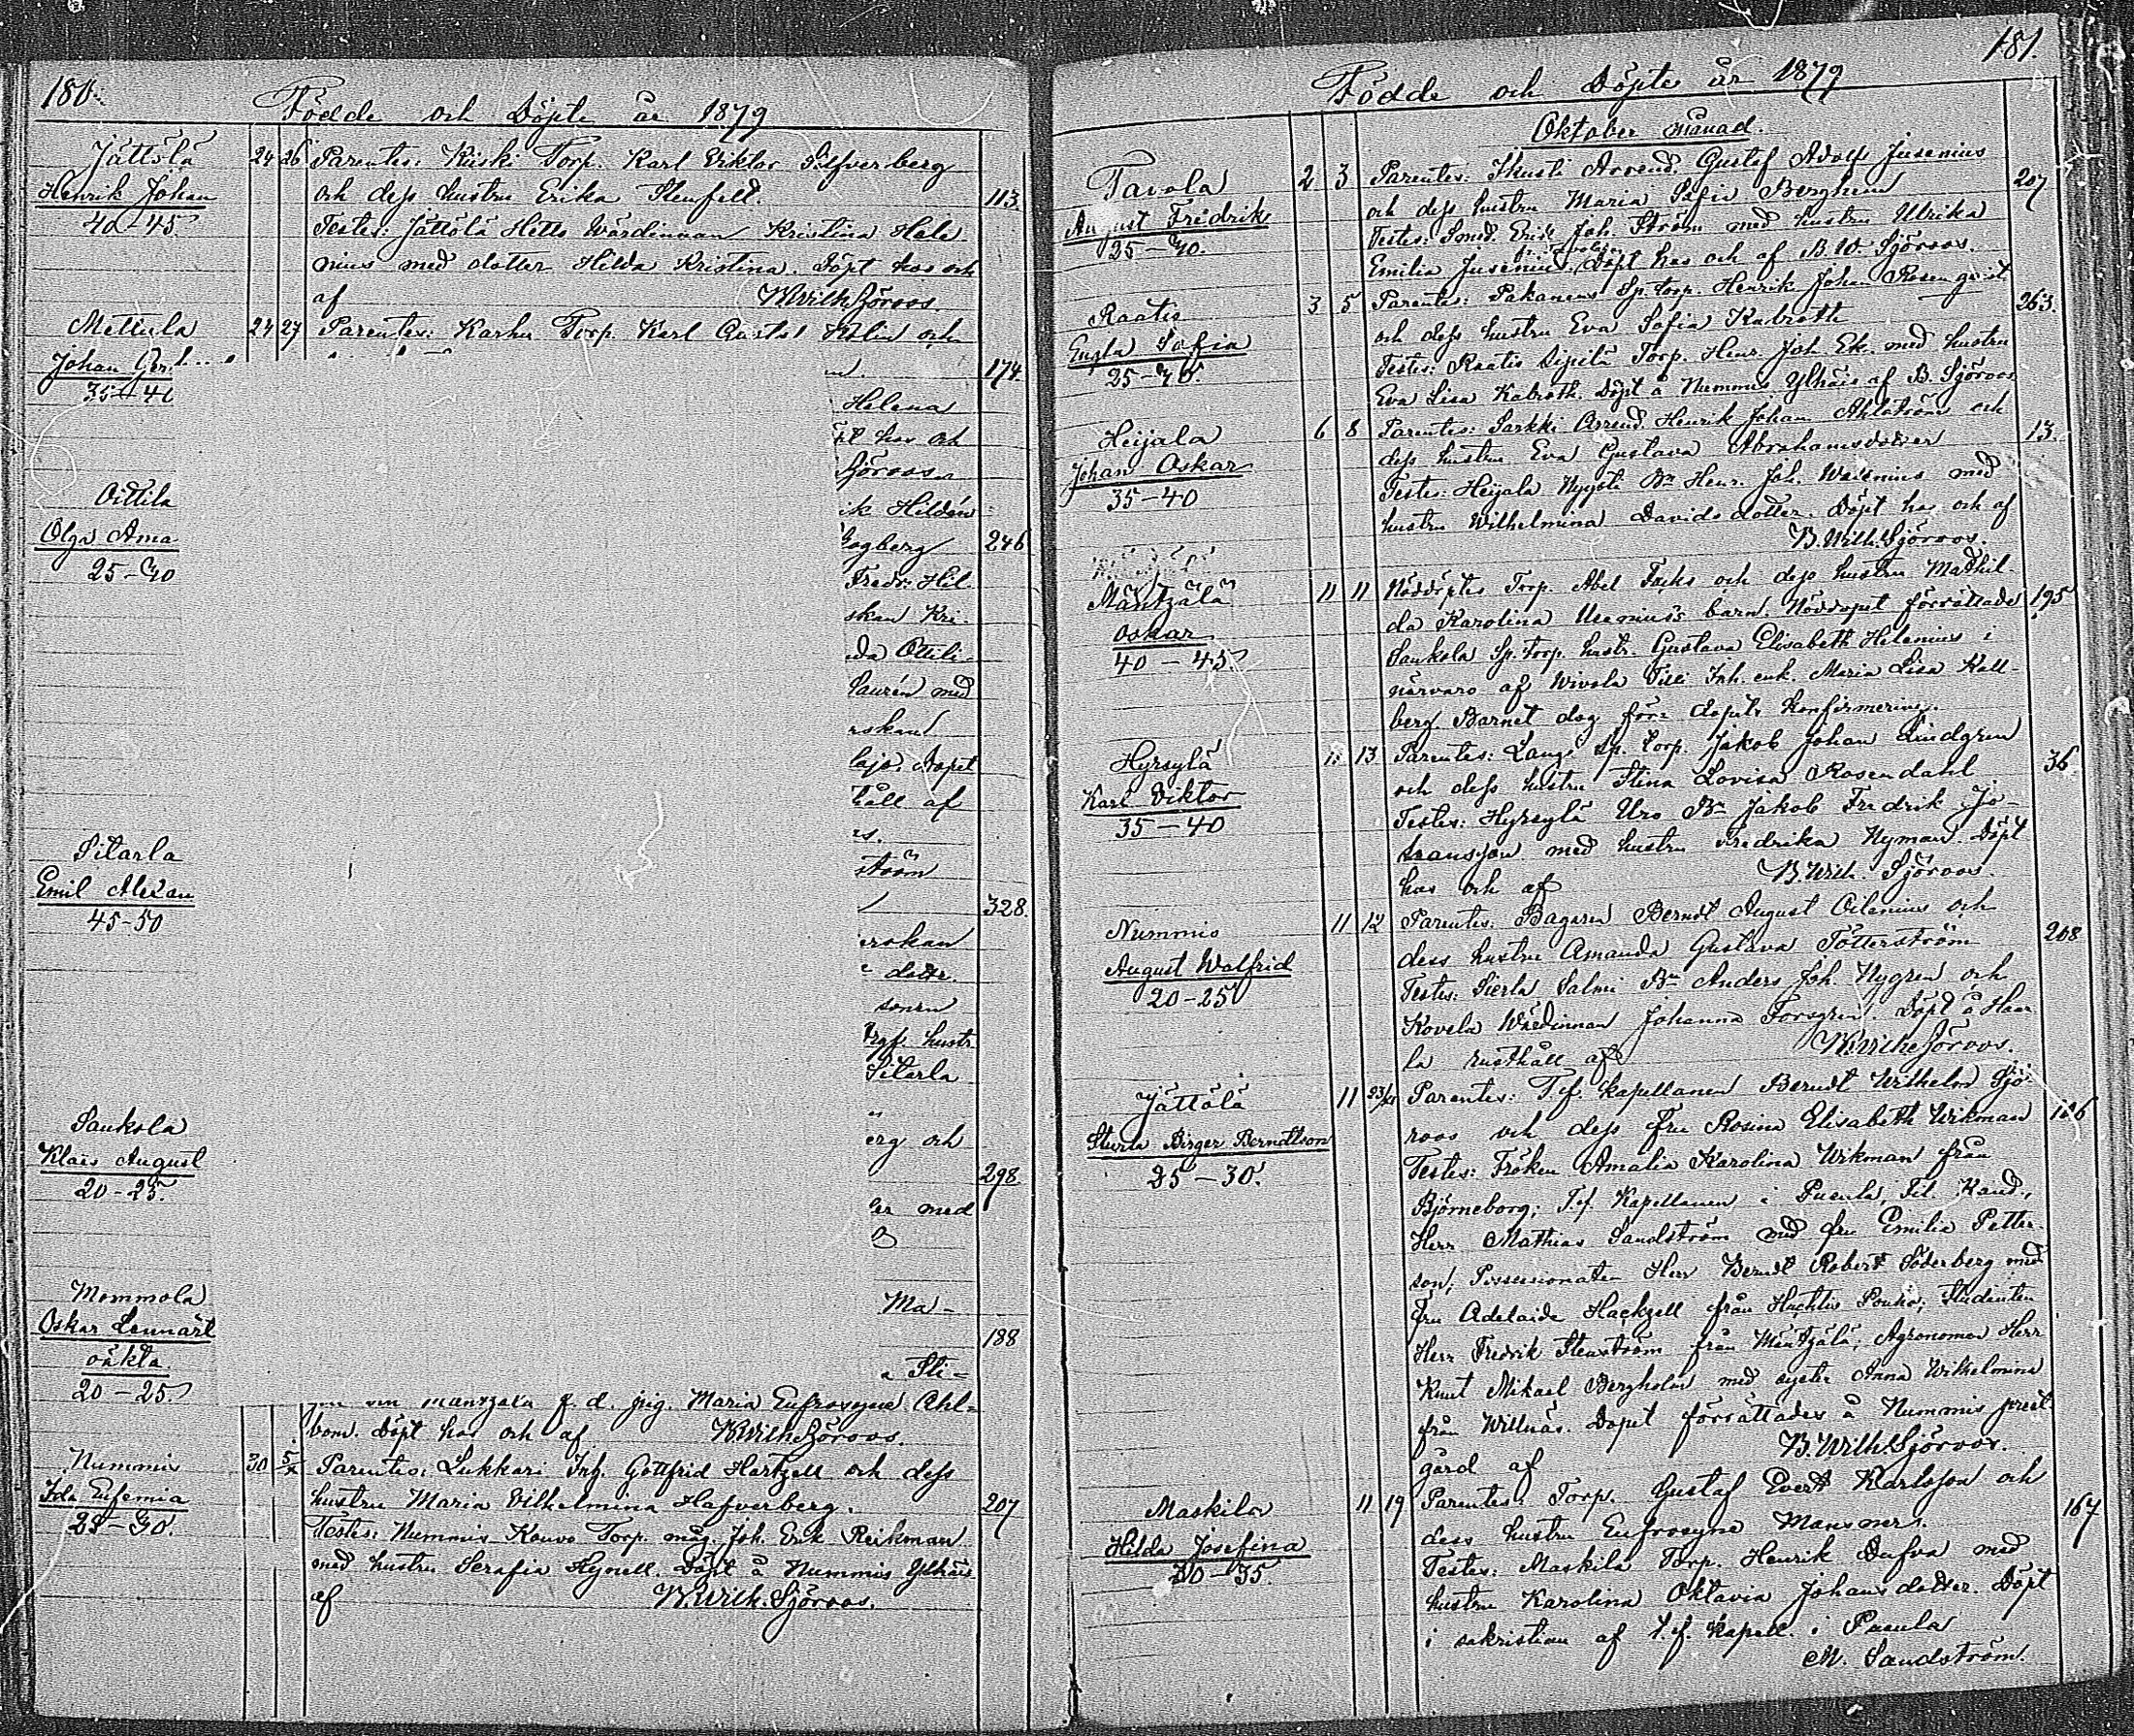 180.
Födde och Döpte år 1879
Jättölä 24 26 Parentes: Kiiski Torp. Karl Viktor Silfverberg
Henrik Johan och dess hustru Erika Stenfell. 113.
40-45 Testes: Jättölä Hette Wärdinnan Kristina Hele-
nius med dotter Hilda Kristina. Döpt hos och
af B.Wilh.Sjöroos.
Mettula 24 27 Parentes: Karhu Torp. Karl Gustaf Holin och
Johan 174.
35-4
Helena
hos och
Sjöroos
Oittila Hildén
Olga Anna 246
25-40 Fredr. Hil-
skan Kri-
da Ottili-
Laurén med
rskan
Döpt
håll af
rs.
Sitarla ström
Emil Alexan
45-50 328.
erskan
dotter.
sonen
hustr.
Sitarla
Saukola erg och
Klaës August 298
20-25. er med
Mommola Ma-
Oskar Lennart 188
oäkta Sti-
20-25
f. d. pig. Maria Eufrosyne Ahl-
bom. Döpt hos och af B.Wilh.Sjöroos.
Nummis 30 5/X Parentes: Lukkari Inh. Gottfrid Hartzell och dess
Ida Eufemia hustru Maria Vilhelmina Hafverberg. 207
25-30. Testes: Nummis Kouvo Torp. måg Joh. Erik Reikman
med hustru Serafia Hynell. Döpt å Nummis Ylhäis
af B.Wilh.Sjöroos.
181.
Födde och Döpte år 1879
Oktober månad.
Tavola 2 3 Parentes: Arrend. Gustaf Adolf Jusenius
August Fredrik och dess hustru Maria Sofia Berghem 207
25-40. Testes: Smed. Erik Joh. Ström med hustru Ulrika
Emilia Jusenius. Döpt hos och af B.W. Sjöroos.
Raatis 3 5 Parentes: Pakanens Sp. torp. Henrik Johan Rosenqvist
Engla Sofia och dess hustru Eva Sofia Kalroth 263.
25-40. Testes: Raatis Sipilä Torp. Henr. Joh. Ek. med hustru
Eva Lisa Kalroth. Döpt å Nummis Ylhäis af B. Sjöroos
Heijala 6 8 Parentes: Sarkki Arrend. Henrik Johan Ahlström och
Johan Oskar dess hustru Eva Gustava Abrahamsdotter 13.
35-40 Testes: Heijala Nygsti Bn Henr. Joh. Walenius med
hustru Wilhelmina Davidsdotter. Döpt hos och af
B.Wilh.Sjöroos.
Mäntzälä 11 11 Nöddöptes Torp. Abel Facks och dess hustru Mathil-
Oskar da Karolina barn. Nöddopet förrättades 195
40-45. Saukola Sp. torp. hustr. Gustava Elisabeth Helenius i
närvaro af Wivola Tilli Inh. enk. Maria Lisa Hall-
berg Barnet dog före dopets konfirmering.
Hyrsylä 11 13 Parentes: Lange Sp. torp. Jakob Johan Lindgren
Karl Viktor och dess hustru Stina Lovisa Rosendahl 36
35-40 Testes: Hyrsylä Uro Bn Jakob Fredrik Jo-
hansson med hustru Fredrika Nyman Döpt
hos och af B.Wilh. Sjöroos.
Nummis 11 12 Parentes: Bagaren Berndt August Oilenius och
August Walfrid dess hustru Amanda Gustava Tötterström 208
20-25 Testes: Sierla Salmi Bn Anders Joh. Nygren och
Kovela Wärdinnan Johanna Forsgren. Döpt å Haar
la rusthåll af B.Wilh.Sjöroos.
Jättölä 11 23/XI Parentes: T.f. kapellanen Berndt Wilhelm Sjö-
Sturla Birger Berndtson roos och dess fru Rosina Elisabeth Wikman 126
25-30. Testes: Fröken Amalia Karolina Wikman från
Björneborg; T.f. Kapellanen i Pusula, Fil. Kand.,
Herr Mathias Sandström med fru Emilia Petter-
son; Possessionaten Herr Berndt Robert Söderberg med
fru Adelaide Hackzell från Huhtis Pouho; Studenten
Herr Fredrik Stenström från Mäntzälä; Agronomen Herr
Knut Mikael Bergholm med syster Anna Wilhelmina
från Willnäs. Dopet förrättades å Nummis prest-
gård af B.Wilh.Sjöroos.
Maskila 11 19 Parentes: Torp. Gustaf Evert Karlsson och
Hilda Josefina dess hustru Eufrosyne Mansner. 167
30-35. Testes: Maskila Torp. Henrik Dufva med
hustru Karolina Oktavia Johansdotter. Döpt
i sakristian af t.f. kapell. i Pusula
M. Sandström.